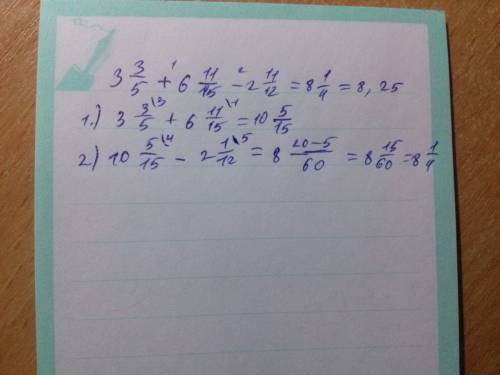 3 3/5 + 6 11/15 - 2 11/12 = 8 1/4 = 8, 25
1.) 3 3/5 + 6 11/15 = 10 5/15
2) 10 5/15 - 2 1/12 = 8 20-5/60 = 8 15/60 = 8 1/4